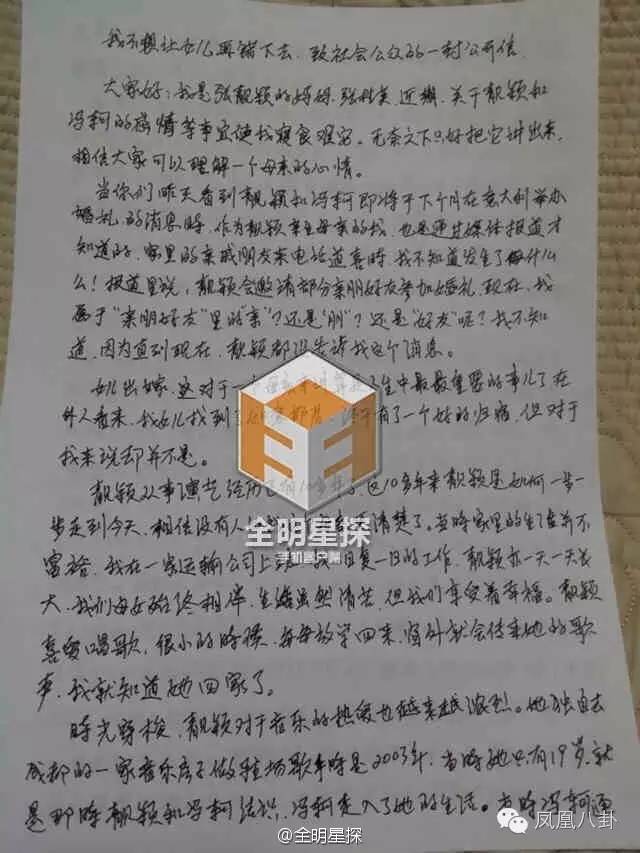 我不想让女儿再错下去，致社会公众的一封公开信
大家好：我是张靓颖的妈妈，张桂英，近期，关于靓颖和
冯轲的婚情等事宜使我寝食难安。无奈之下只好把它讲出来，
相信大家可以理解一个母亲的心情。
当你们昨天看到靓颖和冯轲即将于下个月在意大利举办
婚礼的消息时，作为靓颖亲生母亲的我，也是通过媒体报道才
知道的，家里的亲戚朋友来电话道喜时，我不知道发生了什么
么！报道里说，靓颖会邀请部分亲朋好友参加婚礼，现在，我
属于“亲朋好友”里的“亲”？还是“朋”？还是“好友”呢？我不知
道，因为直到现在，靓颖都没告诉我这个消息。
女儿出嫁，这对于一个母亲来讲算是一生中最最重要的事儿了在
外人看来，我女儿找到了 终于有了一个好的归宿，但对于
我来说却并不是。
靓颖从事演艺经历已有10多年了，这10多年来靓颖是如何一步一
步走到今天，相信没有人 清楚了。当时家里的生活并不
富裕，我在一家运输公司上班 日复一日的工作，靓颖亦一天一天长
大，我们母女始终相伴，生活虽然清苦，但我们享受着幸福。靓颖
喜爱唱歌，很小的时候，每每放学回来，窗外就会传来她的歌
声，我就知道她回家了。
时光穿梭，靓颖对于音乐的热爱也越来越浓烈。她独自去
成都的一家音乐房子做驻场歌手时是2003年，当时她只有19岁，就
是那时靓颖和冯轲结识，冯轲走入了她的生活。当时冯轲通
全明星探
手机客户端
@全明星探
凤凰八卦